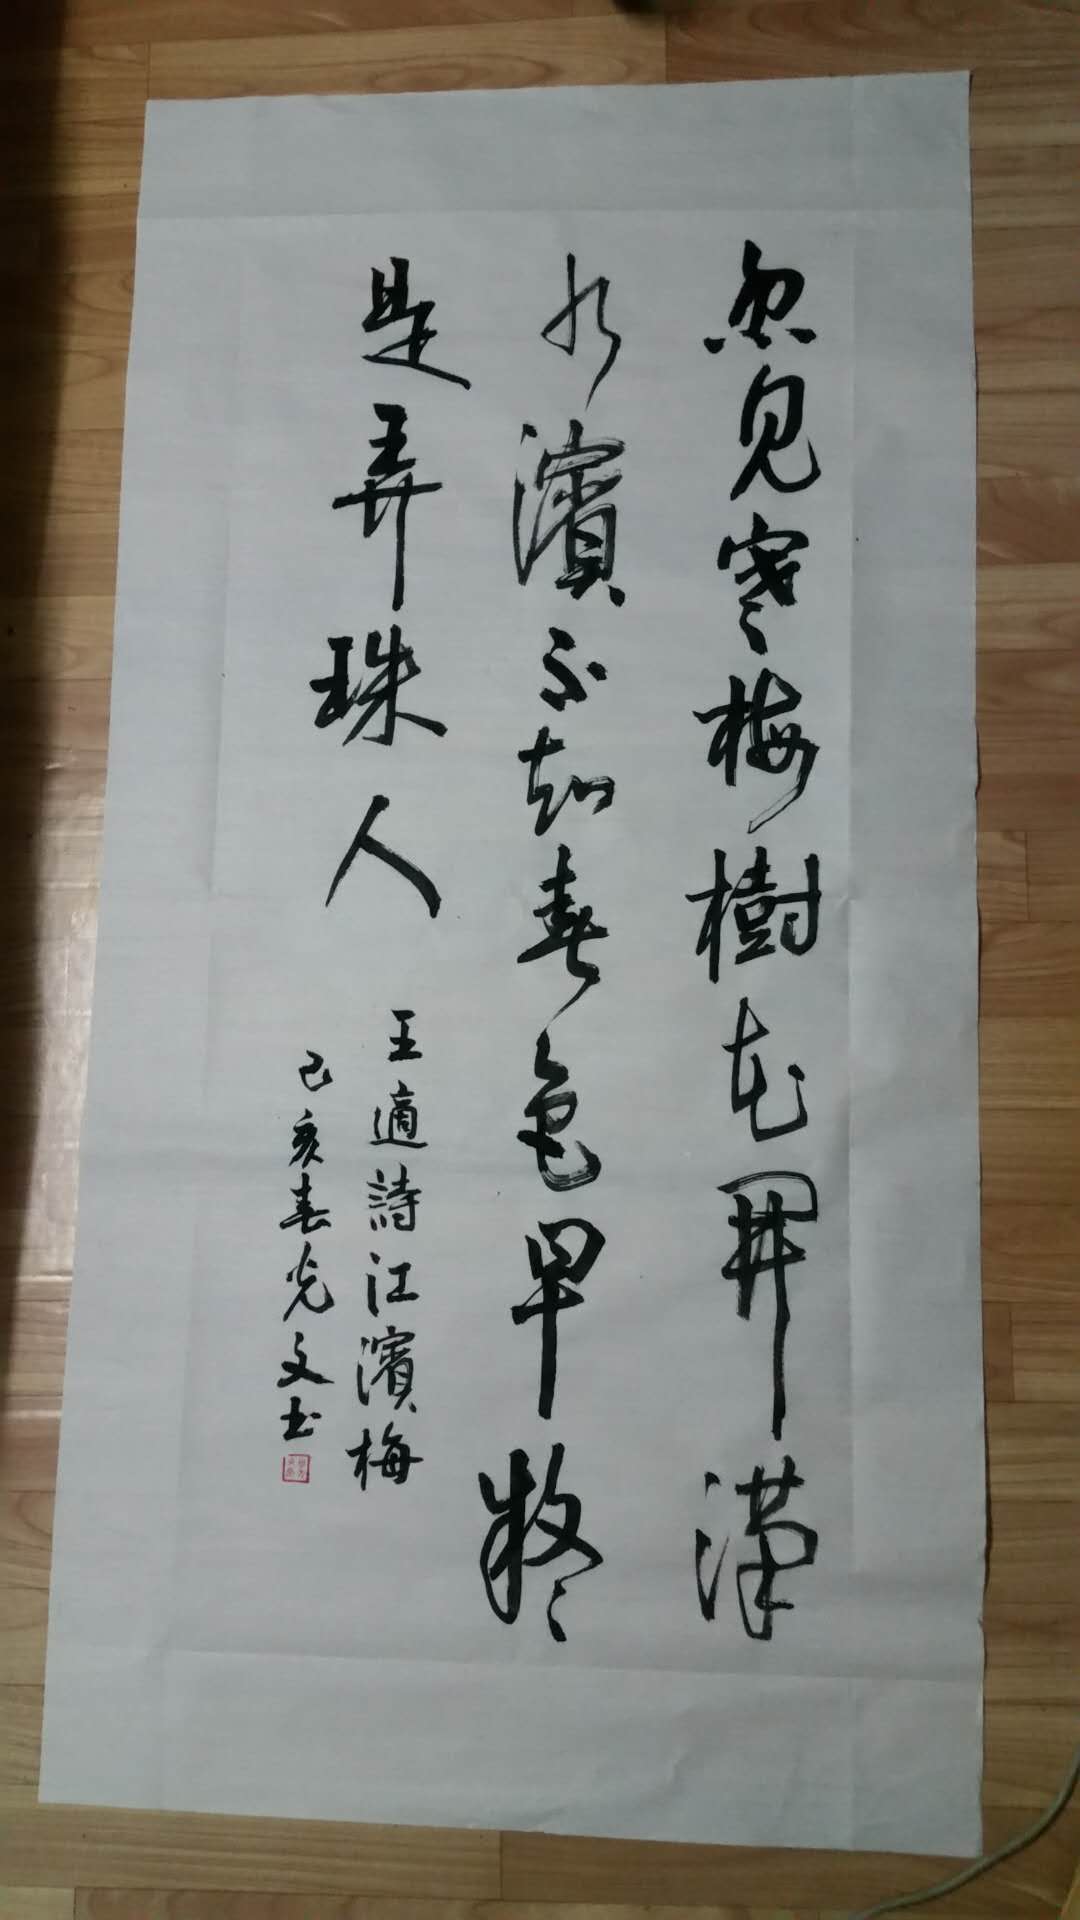 忽見寒梅樹花開漢
水濱不知春色早疑
是弄珠人
王適詩江濱梅
己亥春光文书